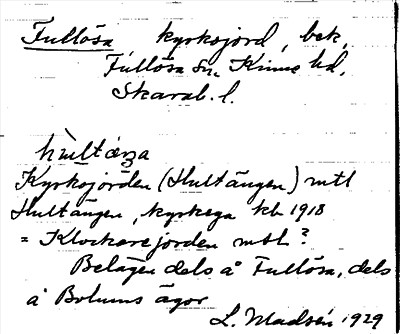 Fullösa kyrksjord, bek,
Fullösa sn Kinne hd,
Skarab. l.
hùltæŋa
Kyrkojorden (Hultängen) mtl
Hultängen, kyrkega kb 1918
= Klockarejorden mtl?
Belägen dels å Fullösa, dels
å Bolums ägor
L. Madsén 1929